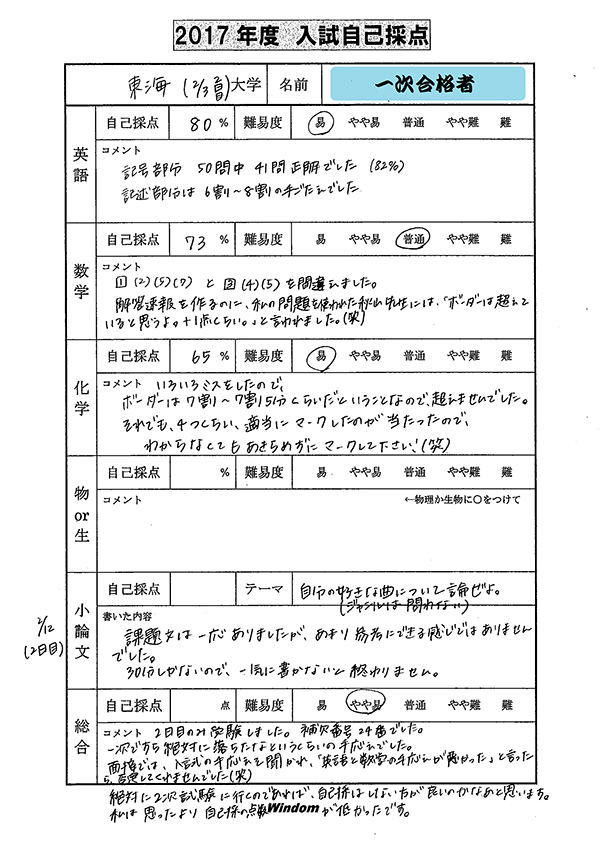 2017年度 入試自己採点
東海 (2/3 2日目) 大学 名前 一次合格者
英語
自己採点 80 % 難易度 易 やや易 普通 やや難 難
コメント
記号部分 50問中 41問正解でした (82%)
記述部分は6割〜8割の手ごたえでした
数学
自己採点 73 % 難易度 易 やや易 普通 やや難 難
コメント
1 (2)(5)(7) と 2 (4)(5) を間違えました。
解答速報を作るのに、私の問題を使われた秋山先生には、「ボーダーは超えて
いると思うよ。+1点くらい。」と言われました。(笑)
化学
自己採点 65 % 難易度 易 やや易 普通 やや難 難
コメント いろいろミスをしたので、
ボーダーは7割〜7割5分くらいだということなので、超えませんでした。
それでも、4つくらい、適当にマークしたのが当たったので、
わからなくてもあきらめずにマークして下さい!(笑)
物or生
自己採点 % 難易度 易 やや易 普通 やや難 難
コメント ←物理か生物に○をつけて
2/12
(2日目)
小論文
自己採点 テーマ 自分の好きな曲について論ぜよ。
(ジャンルは問わない)
書いた内容
課題文は一応ありましたが、あまり参考にできる感じではありません
でした。
30分しかないので、一気に書かないと終わりません。
総合
自己採点 点 難易度 易 やや易 普通 やや難 難
コメント 2日目のみ受験しました。補欠番号24番でした。
一次で方ら絶対に落ちたなというくらいの手応えでした。
面接では、入試の手応えを聞かれ、「英語と数学の手応えが悪かった」と言った
ら、否定してくれませんでした(笑)
絶対に2次試験に行くのであれば、自己採はしない方が良いのかなあと思います。
私は思ったより自己採の点数Windomが低かったです。